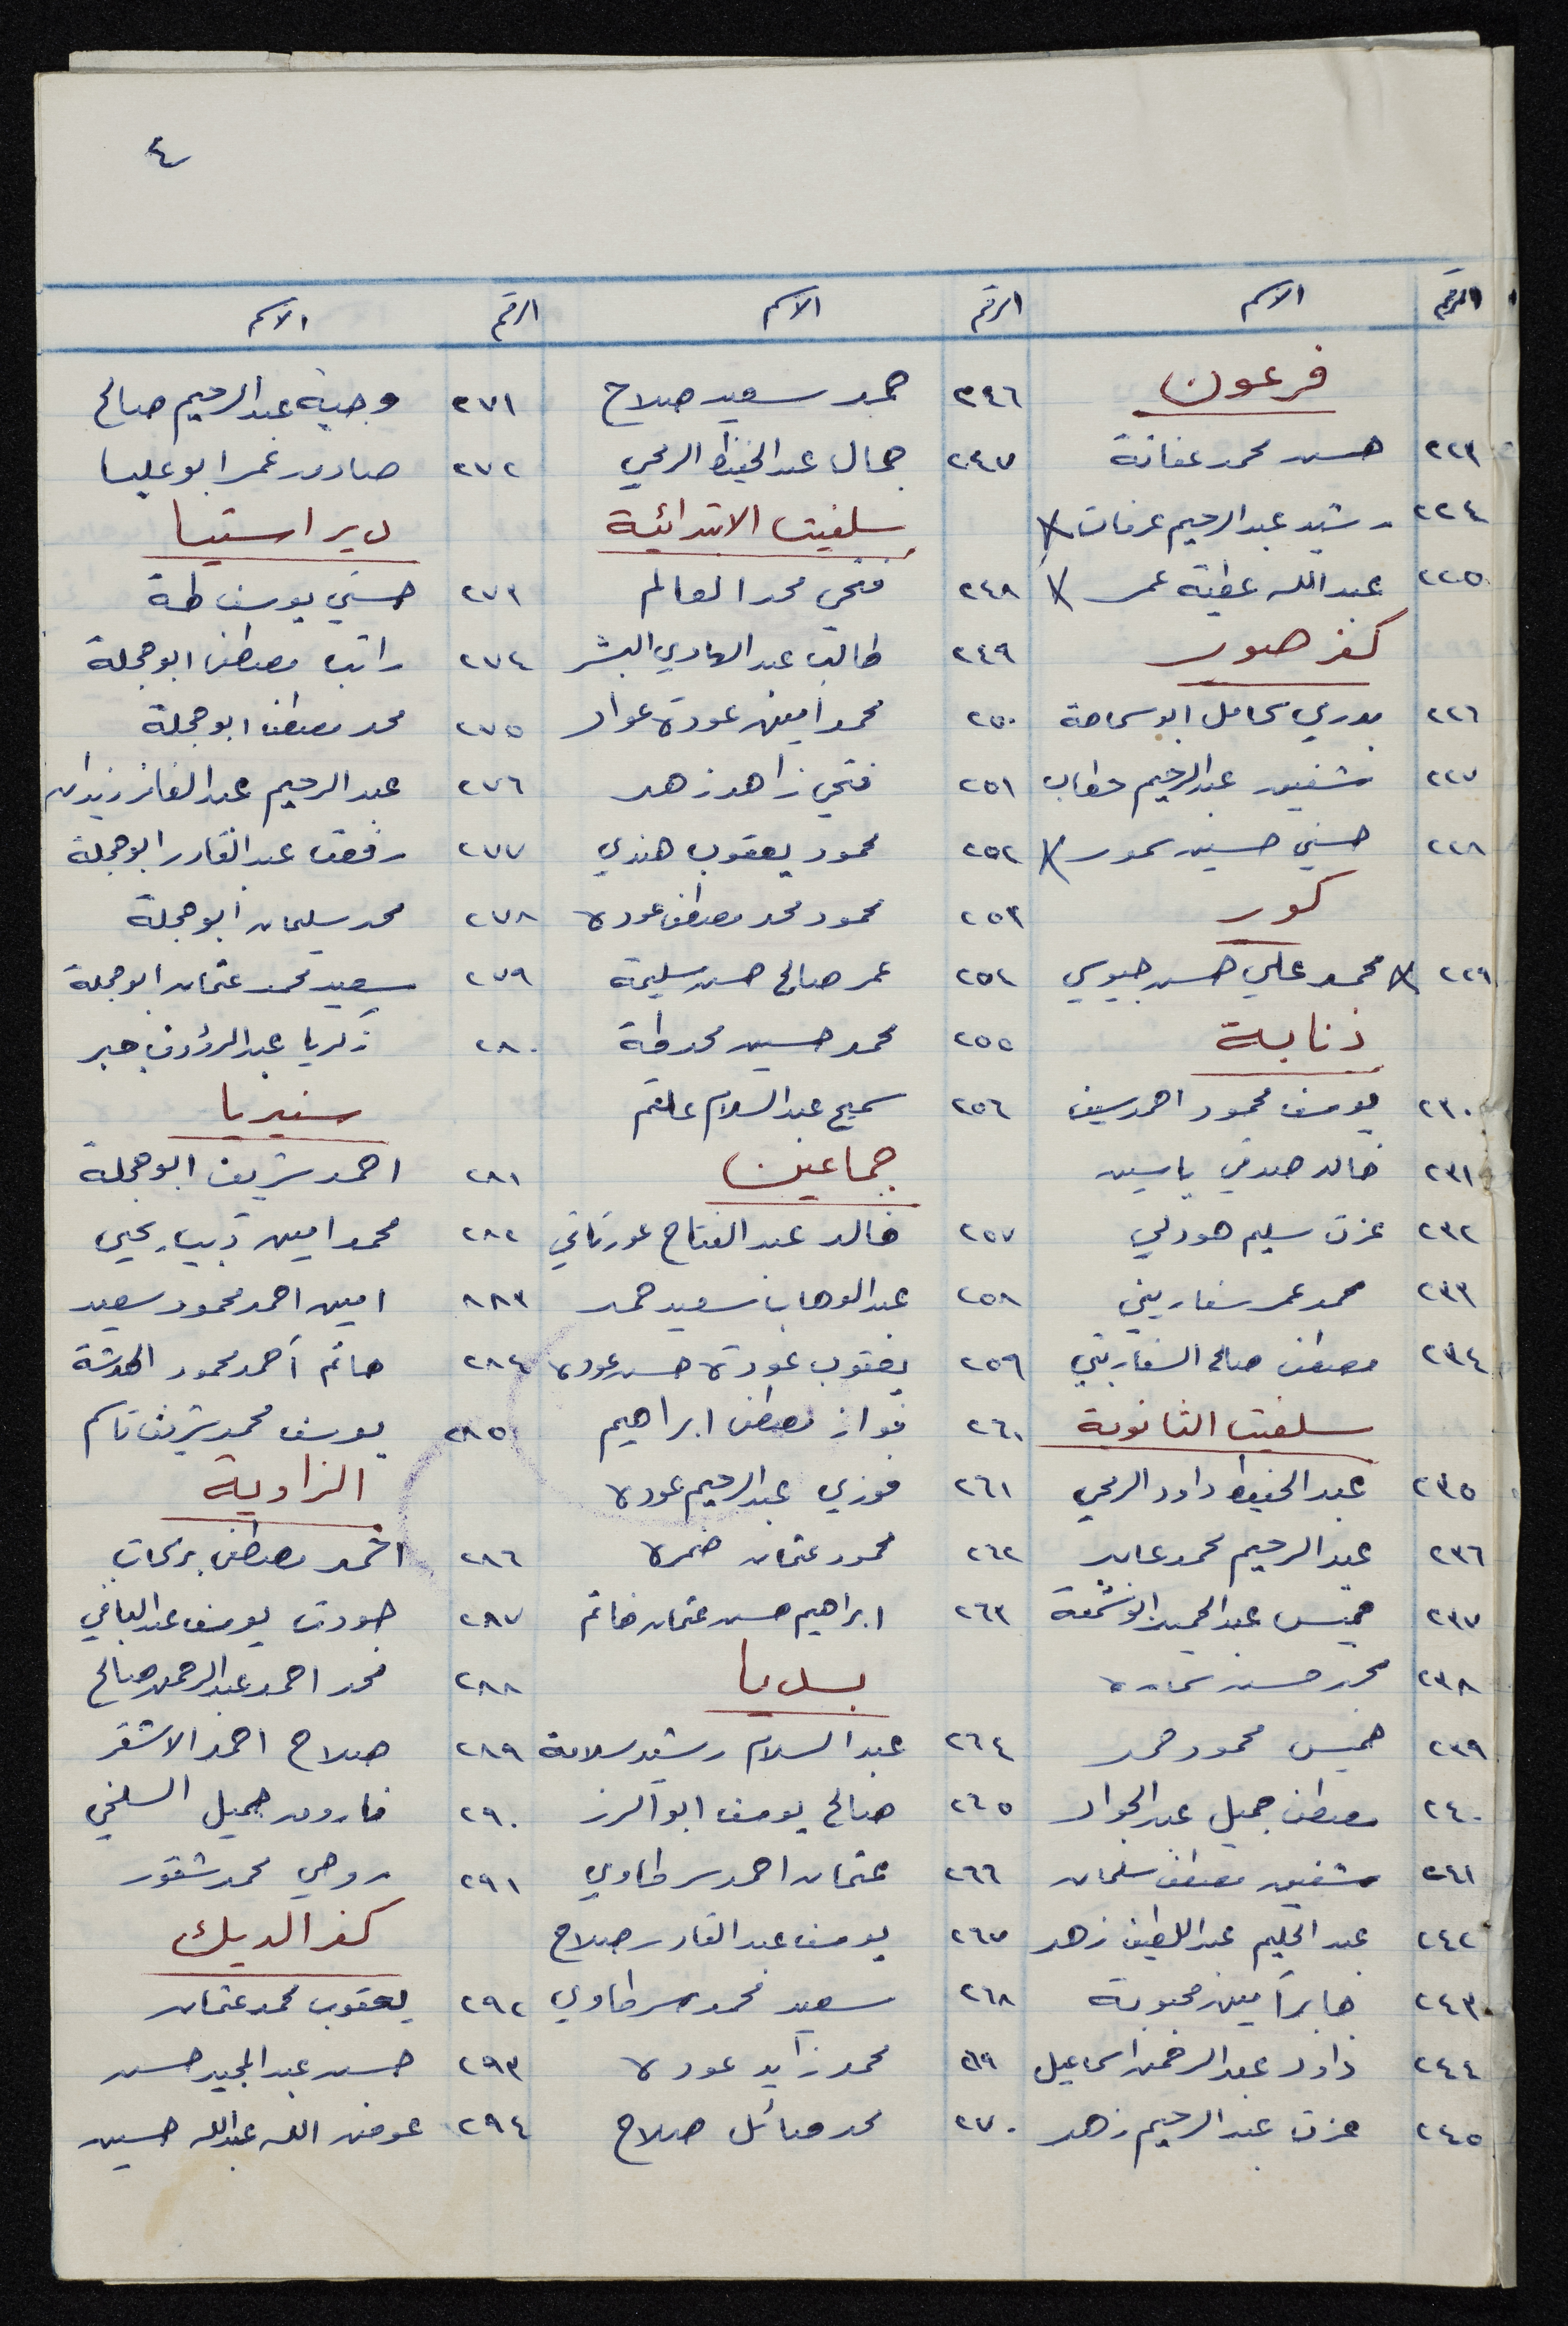 ٤
الرقم الاسم
فرعون
٢٢٣ حسن محمد عفانة
٢٢٤ رشيد عبدالرحيم عرفات X
٢٢٥ عبدالله عطية عمر X
كفر صور
٢٢٦ بدري كامل ابو سماحة
٢٢٧ شفيق عبدالرحيم حطاب
٢٢٨ حسني حسين سمور X
كور
٢٢٩ X محمد علي حسن جيوسي
ذنابة
٢٣٠ يوسف محمود احمد سيف
٢٣١ خالد صدقي ياسين
٢٣٢ عزت سليم هودلي
٢٣٣ محمد عمر سفاريني
٢٣٤ مصطفى صالح السفاريني
سلفيت الثانوية
٢٣٥ عبد الحفيظ داود الرمحي
٢٣٦ عبد الرحيم محمد عابد
٢٣٧ خميس عبدالحميد ابو شمعة
٢٣٨ محمد حسن
٢٣٩ خميس محمود حمد
٢٤٠ مصطفى جميل عبد الجواد
٢٤١ شفيق مصطفى سلمان
٢٤٢ عبد الحليم عبداللطيف زهد
٢٤٣ جابر امين محبوبة
٢٤٤ داود عبد الرحمن اسماعيل
٢٤٥ عزت عبد الرحيم زهد
الرقم الاسم
٢٤٦ حمد سعيد صلاح
٢٤٧ جمال عبد الحفيظ الرمحي
سلفيت الابتدائية
٢٤٨ فتحي محمد العالم
٢٤٩ طالب عبد الهادي البشر
٢٥٠ محمد امين عودة عواد
٢٥١ فتحي زاهد زهد
٢٥٢ محمود يعقوب هندي
٢٥٣ محمود محمد مصطفى عودة
٢٥٤ عمر صالح حسن سليمة
٢٥٥ محمد حسين محمد طة
٢٥٦ سميح عبد السلام علقم
جماعين
٢٥٧ خالد عبد الفتاح عورتاني
٢٥٨ عبد الوهاب سعيد حمد
٢٥٩ يعقوب عودة حسن عودة
٢٦٠ فواز مصطفى ابراهيم
٢٦١ فوزي عبد الرحيم عودة
٢٦٢ محمود عثمان ضمرة
٢٦٣ ابراهيم حسن عثمان خاتم
بديا
٢٦٤ عبد السلام رشيد سلامة
٢٦٥ صالح يوسف ابو الرز
٢٦٦ عثمان احمد سرطاوي
٢٦٧ يوسف عبد القادر صلاح
٢٦٨ سعيد محمد سرطاوي
٢٦٩ محمد زايد عودة
٢٧٠ محمد صلاح
الرقم الاسم
٢٧١ وجية عبد الرحيم صالح
٢٧٢ صادق عمر ابو عليا
دير استيا
٢٧٣ حسني يوسف طة
٢٧٤ راتب مصطفى ابو حجلة
٢٧٥ محمد مصطفى ابو حجلة
٢٧٦ عبد الرحيم عبد الفائز زيدان
٢٧٧ رفعت عبد القادر ابو حجلة
٢٧٨ محمد سليمان ابو حجلة
٢٧٩ سعيد محمد عثمان ابو حجلة
٢٨٠ زكريا عبد الرؤوف جبر
سنيريا
٢٨١ احمد شريف ابو حجلة
٢٨٢ محمد امين ذيب يحيى
٨٨٣ امين احمد محمود سعيد
٢٨٤ حاتم أحمد محمود
٢٨٥ يوسف محمد شريف قاسم
الزاوية
٢٨٦ احمد مصطفى بركات
٢٨٧ جودت يوسف عبد الباقي
٢٨٨ محمد احمد عبد الرحمن صالح
٢٨٩ صلاح احمد الاشقر
٢٩٠ فاروق جميل السلخي
٢٩١ روحي محمد شقور
كفر الديك
٢٩٢ يعقوب محمد عثمان
٢٩٣ حسن عبد المجيد حسن
٢٩٤ عوض الله عبدالله حسين